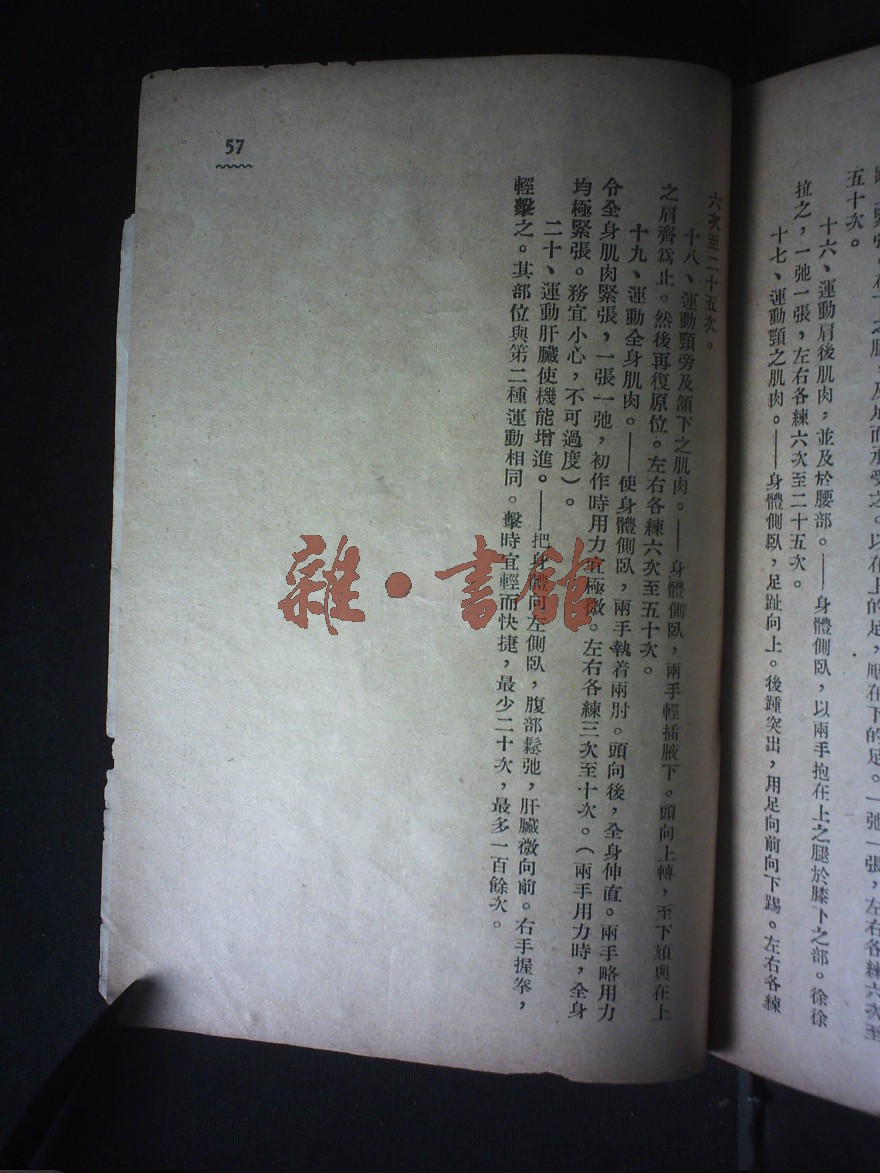 五十次。
十六、運動肩後肌肉，並及於腰部。——身體側臥，以兩手抱在上之腿於膝下之部。徐徐
拉之，一弛一張，左右各練六次至二十五次。
十七、運動頸之肌肉。——身體側臥，足趾向上。後踵突出，用足向前向下踢。左右各練
六次至二十五次。
十八、運動頸旁及頷下之肌肉。——身體側臥，兩手輕插腋下。頭向上轉，至下頦與在上
之肩齊爲止。然後再復原位。左右各練六次至五十次。
十九、運動全身肌肉。——使身體側臥，兩手執着兩肘。頭向後，全身伸直。兩手略用力
令全身肌肉緊張，一張一弛，初作時用力宜極微。左右各練三次至十次。（兩手用力時，全身
均極緊張。務宜小心，不可過度）。
二十、運動肝臟使機能增進。——把身體向左側臥，腹部鬆弛，肝臟微向前。右手握拳，
輕擊之。其部位與第二種運動相同。擊時宜輕而快捷，最少二十次，最多一百餘次。
57
雜·書館